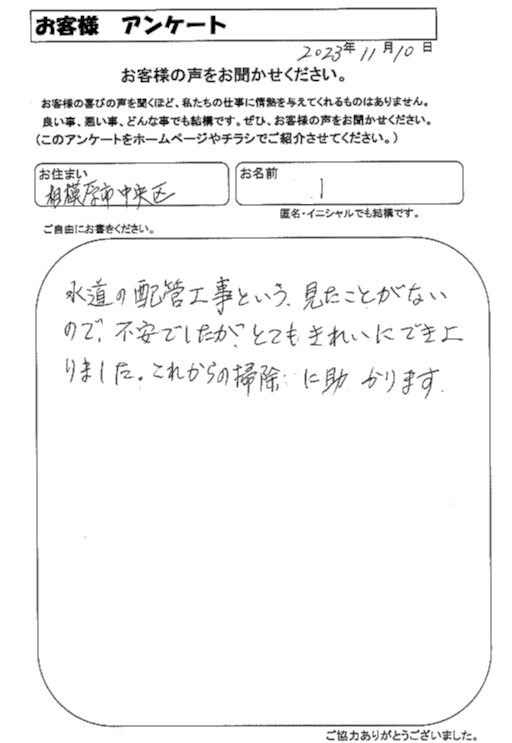 お客様 アンケート
2023年11月10日
お客様の声をお聞かせください。
お客様の喜びの声を聞くほど、私たちの仕事に情熱を与えてくれるものはありません。
良い事、悪い事、どんな事でも結構です。ぜひ、お客様の声をお聞かせください。
(このアンケートをホームページやチラシでご紹介させてください。)
お住まい
相模原市中央区
お名前
I
匿名・イニシャルでも結構です。
ご自由にお書きください。
水道の配管工事という、見たことがない
ので、不安でしたが、とてもきれいにでき上
りました。これからの掃除 に助かります。
ご協力ありがとうございました。